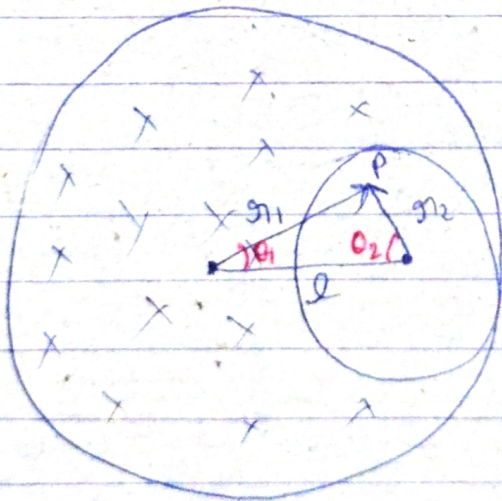 P
r₁
r₂
θ₁
θ₂
l